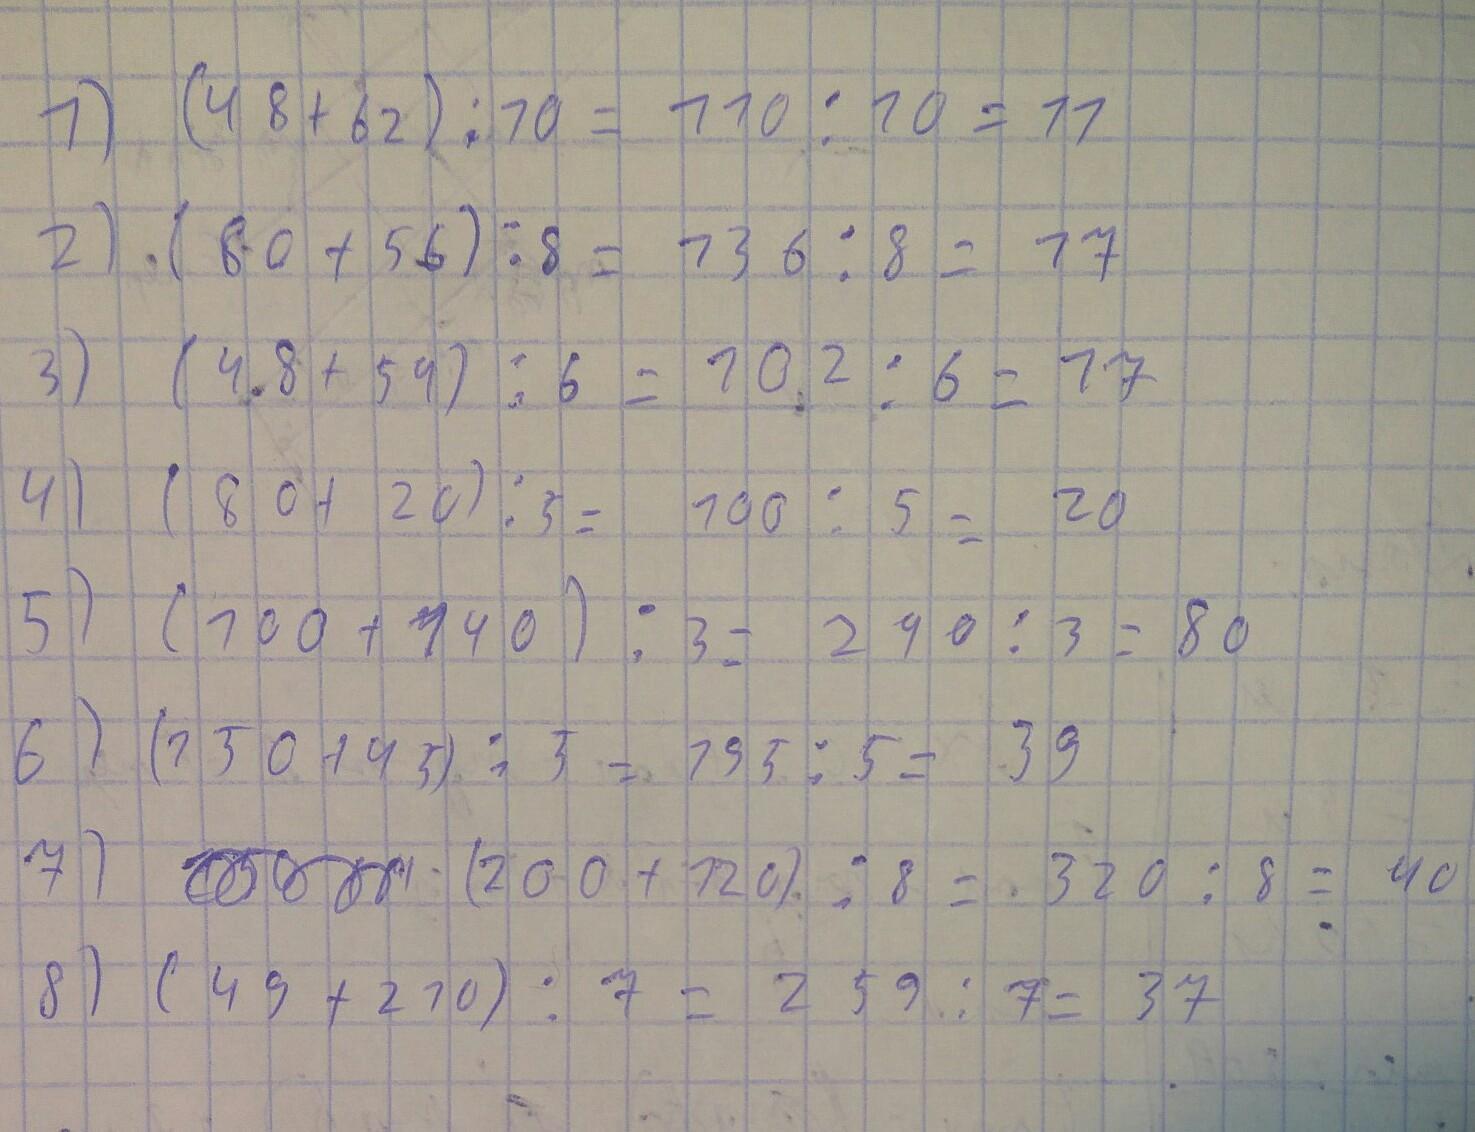 1) (48+62):10= 110:10=11
2) (80+56):8= 136:8= 17
3) (48+54):6= 102:6= 17
4) (80+20):5= 100:5= 20
5) (100+140):3= 240:3= 80
6) (150+45):5= 195:5= 39
7) (200+120):8= 320:8= 40
8) (49+210):7= 259:7= 37